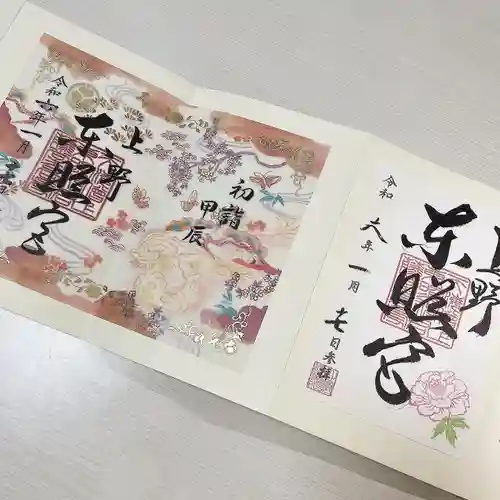 上野
東照宮
令和六年一月
初詣
甲辰
上野
東照宮
令和
六年
一月
七日参拝